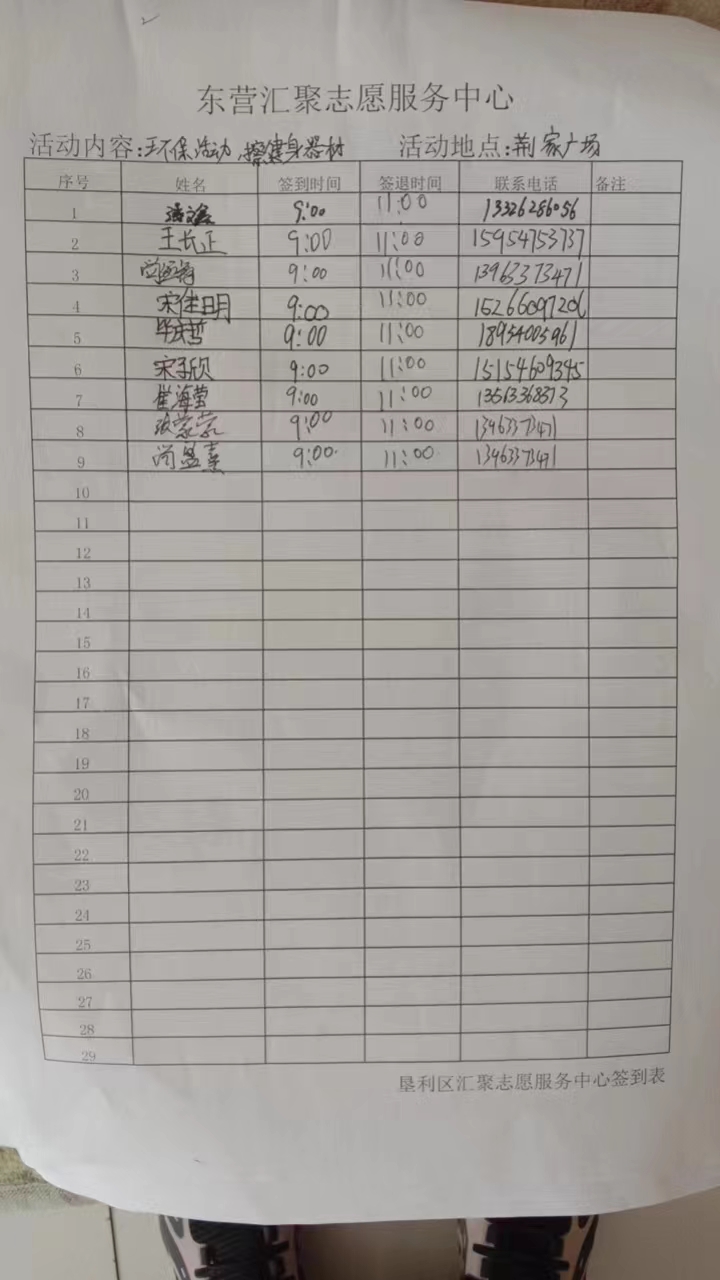 东营汇聚志愿服务中心
活动内容:环保活动,擦健身器材 活动地点:荆家广场
序号 姓名 签到时间 签退时间 联系电话 备注
1 9:00 11:00 13326286056
2 王长正 9:00 11:00 15954753737
3 9:00 11:00 13963373471
4 宋佳明 9:00 11:00 15266097206
5 毕云哲 9:00 11:00 18954005961
6 宋子欣 9:00 11:00 15154609345
7 崔海莹 9:00 11:00 13513368373
8 张蒙蒙 9:00 11:00 13463373471
9 尚盈熹 9:00 11:00 13463373471
10
11
12
13
14
15
16
17
18
19
20
21
22
23
24
25
26
27
28
29
垦利区汇聚志愿服务中心签到表